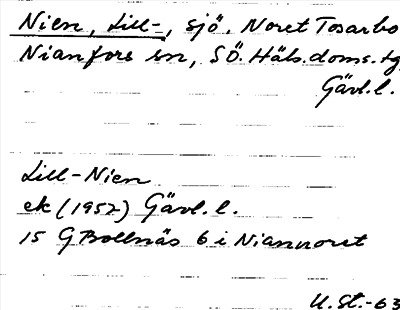 Nien, Lill-, sjö, Noret Tosarbo
Nianfors sn, SÖ. Häls.doms.tg
Gävl.l.
Lill-Nien
ek (1952) Gävl.l.
15 G Bollnäs 6 i Niannoret
U.St.-63